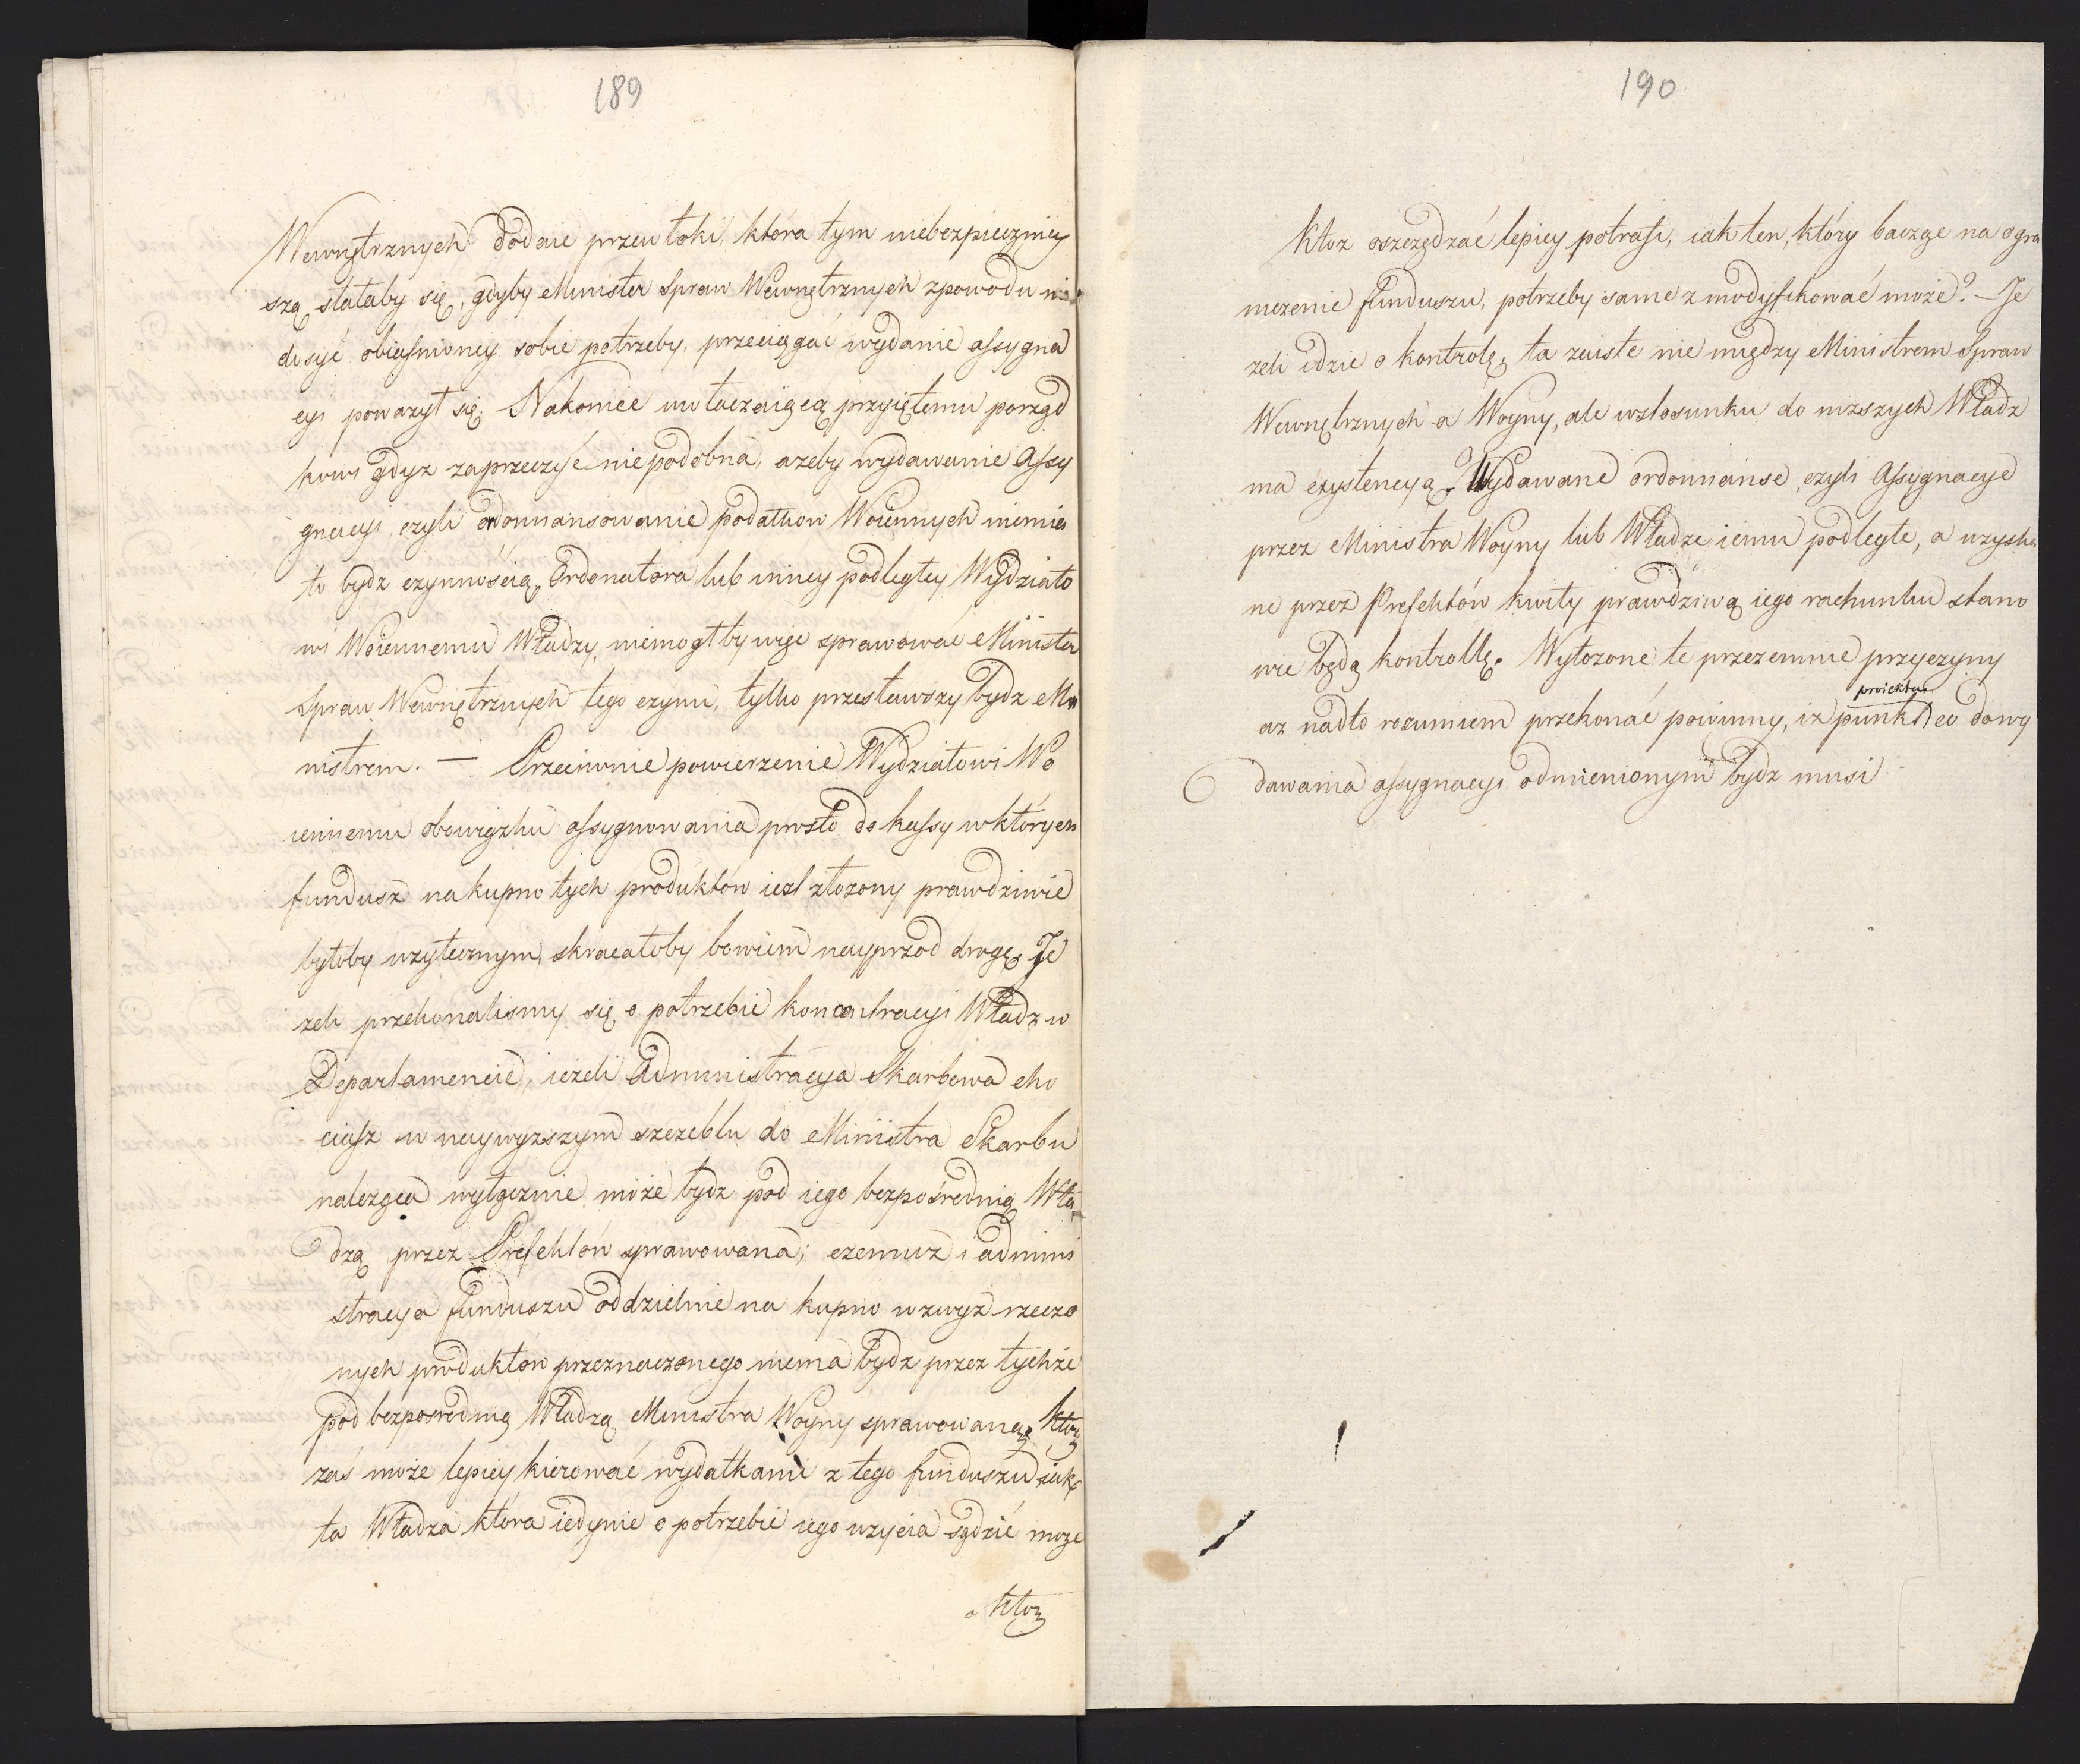 189
Wewnętrznych dodaie przewłoki, która tym niebezpieczniey
szą stałaby się, gdyby Minister Spraw Wewnętrznych zpowodu nie
dosyć obiaśnioney sobie potrzeby, przeciągać wydanie assygna
cyi poważył się. Nakoniec uwłaczaiącą przyiętemu porząd
kowi gdyż zaprzeczyć niepodobna, ażeby wydawanie Assy
gnacyi, czyli ordonnansowanie podatkow Woiennych niemia
ło bydz czynnością Ordonatora lub inney podległey Wydziało
wi Woiennemu Władzy, niemogłby więc sprawować Minister
Spraw Wewnętrznych tego czynu, tylko przestawszy bydz Mi
nistrem. — Przeciwnie powierzenie Wydziałowi Wo
iennemu obowiązku assygnowania prosto do kassy w których
fundusz na kupno tych produktów iest złożony prawdziwie
byłoby użytecznym, skracałoby bowiem nayprzod drogę. Je
żeli przekonalismy się o potrzebie koncentracyi Władz w
Departamencie, ieżeli Administracya Skarbowa cho
ciasz w naywyższym szczeblu do Ministra Skarbu
należąca wyłącznie może bydz pod iego bezpośrednią Wła
dzą przez Prefektów sprawowana; czemuż i admini
stracya funduszu oddzielnie na kupno wzwyż rzeczo
nych produktów przeznaczonego niema bydz przez tychże
pod bezpośrednią Władzą Ministra Woyny sprawowaną. Ktoż
zaś może lepiey kierować wydatkami z tego funduszu iak
ta Władza która iedynie o potrzebie iego użycia sądzić może
Ktoż
190
Ktoz oszczędzać lepiey potrafi, iak ten, który bacząc na ogra
niczenie funduszu, potrzeby same zmodyfikować może? — Je
żeli idzie o kontrolę, ta zaiste nie między Ministrem Spraw
Wewnętrznych a Woyny, ale wstosunku do niższych Władz
ma éxystencyą. Wydawane ordonnanse, czyli Assygnacye
przez Ministra Woyny lub Władze iemu podległe, a uzyska
ne przez Prefektów kwity prawdziwą iego rachunku stano
wie będą kontrollę. Wyłożone te przezemnie przyczyny
proiektu
aż nadto rozumiem przekonać powinny, iż punkt co dowy
dawania assygnacyi odmienionym bydz musi